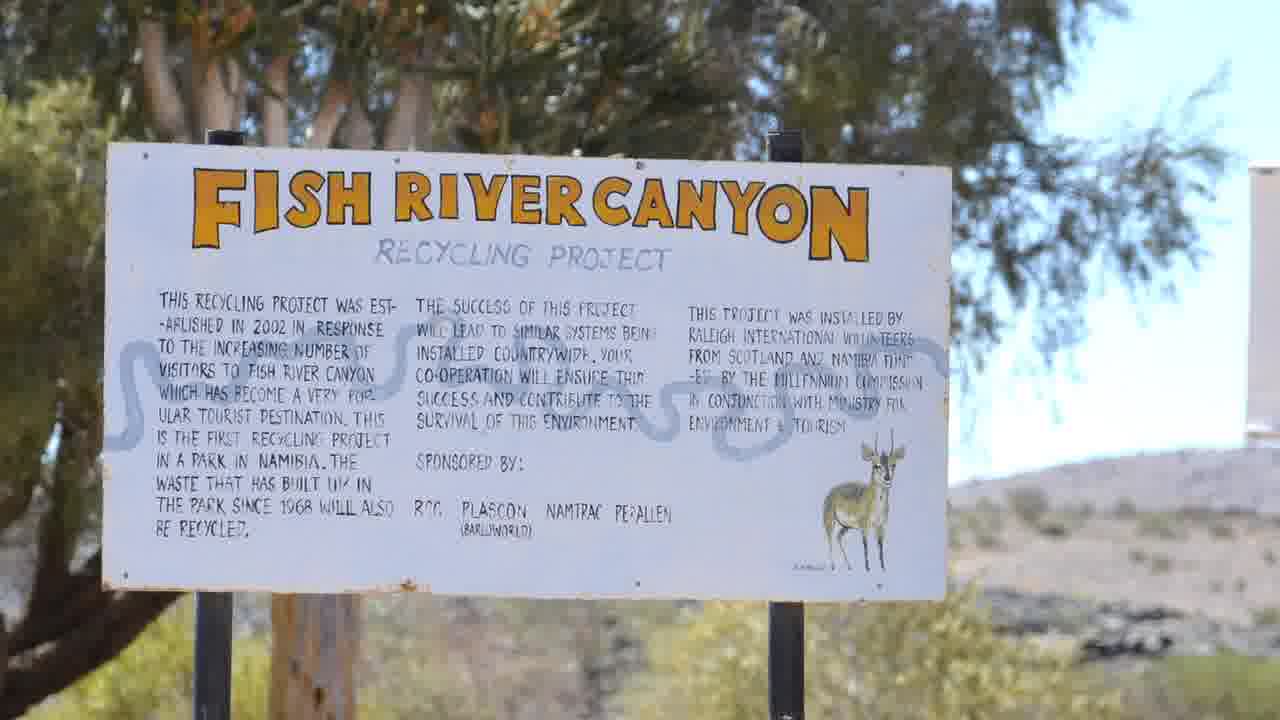 FISH RIVER CANYON
RECYCLING PROJECT
THIS RECYCLING PROJECT WAS EST-
-ABLISHED IN 2002 IN RESPONSE
TO THE INCREASING NUMBER OF
VISITORS TO FISH RIVER CANYON
WHICH HAS BECOME A VERY POP-
ULAR TOURIST DESTINATION. THIS
IS THE FIRST RECYCLING PROJECT
IN A PARK IN NAMIBIA. THE
WASTE THAT HAS BUILT UP IN
THE PARK SINCE 1968 WILL ALSO
BE RECYCLED.
THE SUCCESS OF THIS PROJECT
WILL LEAD TO SIMILAR SYSTEMS BEING
INSTALLED COUNTRYWIDE. YOUR
CO-OPERATION WILL ENSURE THIS
SUCCESS AND CONTRIBUTE TO THE
SURVIVAL OF THIS ENVIRONMENT.
SPONSORED BY:
PLASCON NAMTRAC
THIS PROJECT WAS INSTALLED BY
RALEIGH INTERNATIONAL VOLUNTEERS
FROM SCOTLAND AND NAMIBIA FUND-
-ED BY THE MILLENNIUM COMMISSION
IN CONJUNCTION WITH MINISTRY FOR
ENVIRONMENT & TOURISM